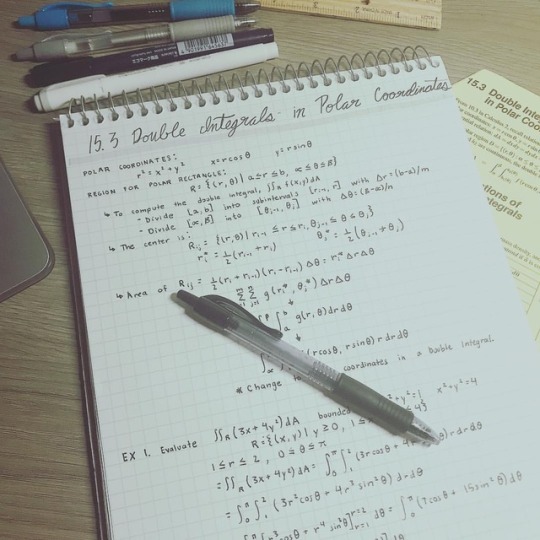 15.3 Double Integrals in Polar Coordinates
POLAR COORDINATES:
r² = x² + y²   x = r cos θ   y = r sin θ
REGION FOR POLAR RECTANGLE:
R = {(r, θ) | a ≤ r ≤ b, α ≤ θ ≤ β}
↳ To compute the double integral, ∫∫R f(x,y) dA
- Divide [a, b] into subintervals [ri-1, ri] with Δr = (b-a)/m
- Divide [α, β] into [θj-1, θj] with Δθ = (β-α)/n
↳ The center is:
Rij = {(r, θ) | ri-1 ≤ r ≤ ri, θj-1 ≤ θ ≤ θj}
ri* = ½(ri-1 + ri)   θj* = ½(θj-1 + θj)
↳ Area of Rij = ½(ri + ri-1)(ri - ri-1) Δθ = ri* Δr Δθ
g(ri*, θj*) Δr Δθ
g(r, θ) dr dθ
(r cos θ, r sin θ) r dr dθ
* Change to coordinates in a Double Integral.
EX 1. Evaluate ∫∫R (3x + 4y²) dA bounded y² = 1   x² + y² = 4
R = {(x,y) | y ≥ 0, 1 ≤ 4}
1 ≤ r ≤ 2, 0 ≤ θ ≤ π
= ∫∫R (3x + 4y²) dA = ∫₀^π ∫₁² (3r cos θ + 4 θ) r dr dθ
= ∫₀^π ∫₁² (3r² cos θ + 4r³ sin² θ) dr dθ
cos θ + r⁴ sin² θ] r=1 r=2 dθ = ∫₀^π (7 cos θ + 15 sin² θ) dθ
15.3 Double Inte
in Polar Coo
ons of
tegrals